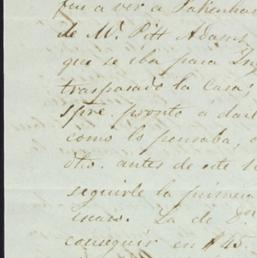 fui a ver a Pakenham
de Mr. Pitt Adams
que se iba para Ing
traspasado la Casa;
spre. pronto a dar
como lo pensaba,
otro. antes de este
seguirle la primera
La de
conseguir en $ 45.